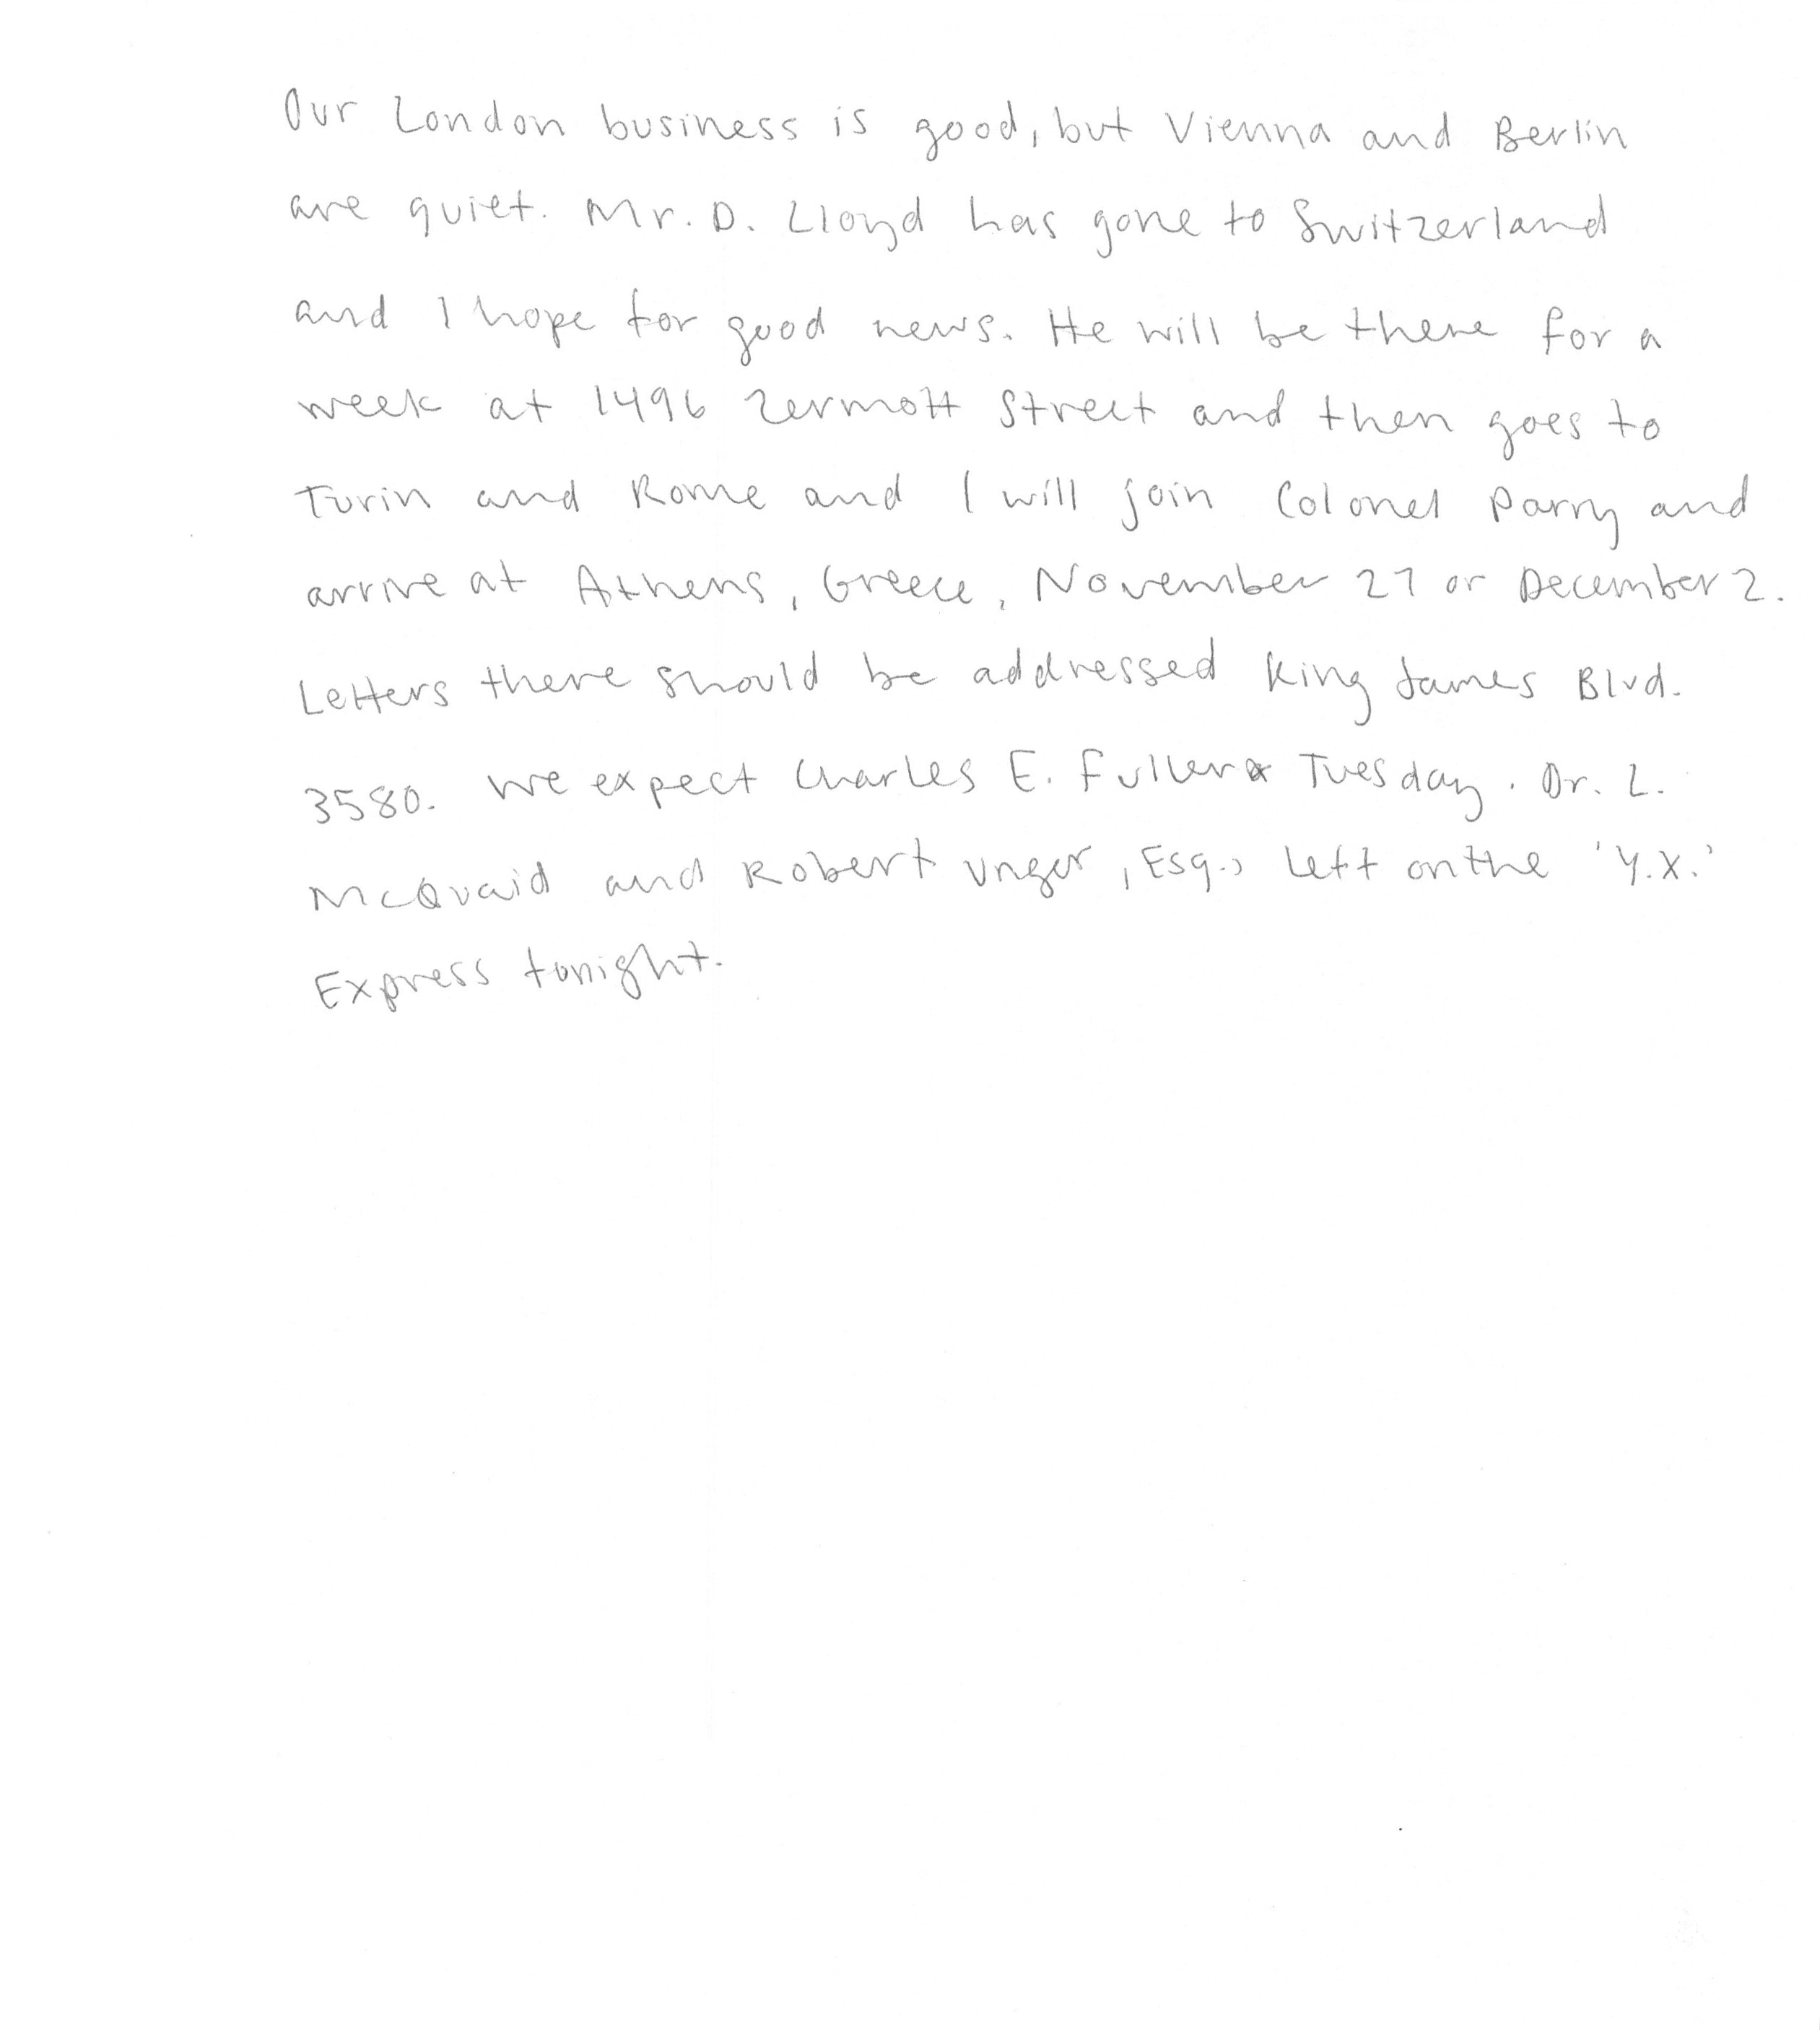 Our London business is good, but Vienna and Berlin
are quiet. Mr. D. Lloyd has gone to Switzerland
and I hope for good news. He will be there for a
week at 1496 Zermott Street and then goes to
Turin and Rome and I will join Colonel Parry and
arrive at Athens, Greece, November 27 or December 2.
Letters there should be addressed King James Blvd.
3580. We expect Charles E. Fuller Tuesday. Dr. L.
McQuaid and Robert Unger, Esq., left on the 'Y.X.'
Express tonight.